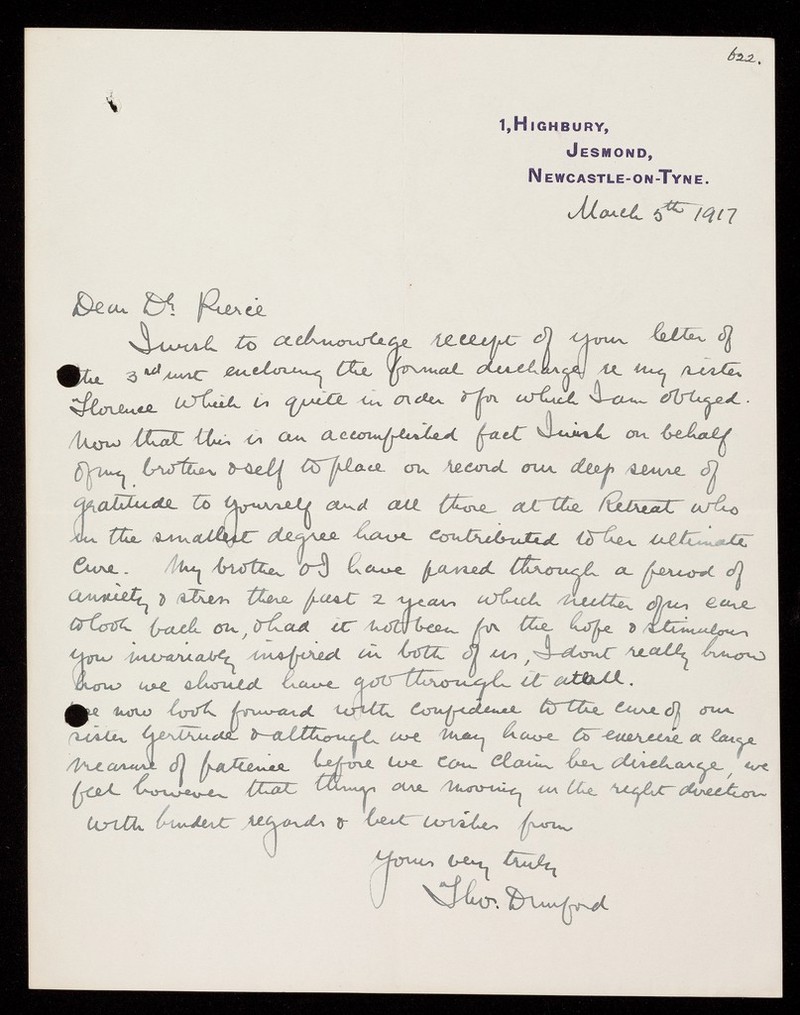 622.
1, HIGHBURY,
JESMOND,
NEWCASTLE-ON-TYNE.
March 5th 1917
Dear Dr. Pierce
I wish to acknowlege receipt of your letter of
the 3rd inst enclosing the formal discharge re my sister
Florence which is quite in order & for which I am obliged.
Now that this is an accomplished fact I wish on behalf
of my brother & self to place on record our deep sense of
gratitude to yourself and all those at the Retreat who
in the smallest degree have contributed to her ultimate
cure. My brother & I have passed through a period of
anxiety & stress these past 2 years which neither of us care
to look back on, & had it not been for the hope & stimulous
you invariably inspired in both of us, I dont really know
how we should have got through it at all.
We now look forward with confidence to the cure of our
sister Gertrude & although we may have to exercise a large
measure of patience before we can claim her discharge, we
feel however that things are moving in the right direction
with kindest regards & best wishes from
Yours very truly
Thos. Dunford